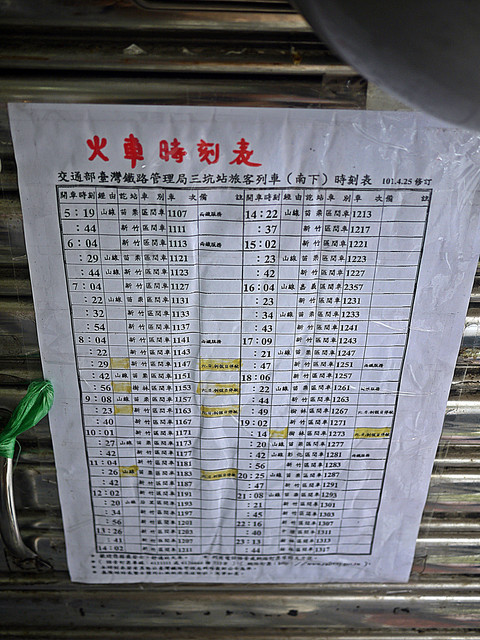 火車時刻表
交通部臺灣鐵路管理局三坑站旅客列車（南下）時刻表 101.4.25 修訂
開車時刻 經由 訖站 車別 車次 備註 開車時刻 經由 訖站 車別 車次 備註
5：19 山線 苗栗 區間車 1107 14：22 山線 苗栗 區間車 1213
：44 新竹 區間車 1111 ：37 新竹 區間車 1217
6：04 新竹 區間車 1113 15：02 新竹 區間車 1221
：29 山線 苗栗 區間車 1121 ：23 山線 苗栗 區間車 1223
：44 山線 新竹 區間車 1123 ：42 新竹 區間車 1227
7：04 新竹 區間車 1127 16：04 山線 嘉義 區間車 2357
：22 山線 苗栗 區間車 1131 ：23 新竹 區間車 1231
：32 新竹 區間車 1133 ：34 山線 苗栗 區間車 1233
：54 新竹 區間車 1137 ：43 新竹 區間車 1241
8：04 新竹 區間車 1141 17：09 新竹 區間車 1243
：22 新竹 區間車 1143 ：21 山線 苗栗 區間車 1247
：29 新竹 區間車 1147 ：47 新竹 區間車 1251
：42 山線 苗栗 區間車 1151 18：06 新竹 區間車 1257
：56 樹林 區間車 1153 ：22 山線 苗栗 區間車 1261
9：08 山線 苗栗 區間車 1157 ：44 新竹 區間車 1263
：23 新竹 區間車 1163 ：49 樹林 區間車 1267
：40 新竹 區間車 1167 19：02 新竹 區間車 1271
10：01 新竹 區間車 1171 ：14 樹林 區間車 1273
：27 山線 苗栗 區間車 1173 ：20 山線 苗栗 區間車 1277
：42 新竹 區間車 1177 ：42 山線 彰化 區間車 1281
11：04 新竹 區間車 1181 ：56 新竹 區間車 1283
：26 山線 苗栗 區間車 1183 20：25 山線 苗栗 區間車 1287
：42 新竹 區間車 1187 ：47 新竹 區間車 1291
12：02 新竹 區間車 1191 21：08 山線 苗栗 區間車 1293
：20 山線 苗栗 區間車 1193 ：21 新竹 區間車 1301
：34 新竹 區間車 1197 ：45 新竹 區間車 1303
：56 新竹 區間車 1201 22：16 新竹 區間車 1307
13：26 新竹 區間車 1203 ：40 新竹 區間車 1311
：41 新竹 區間車 23：13 新竹 區間車
14：02 新竹 區間車 1211 ：44 新竹 區間車 1317